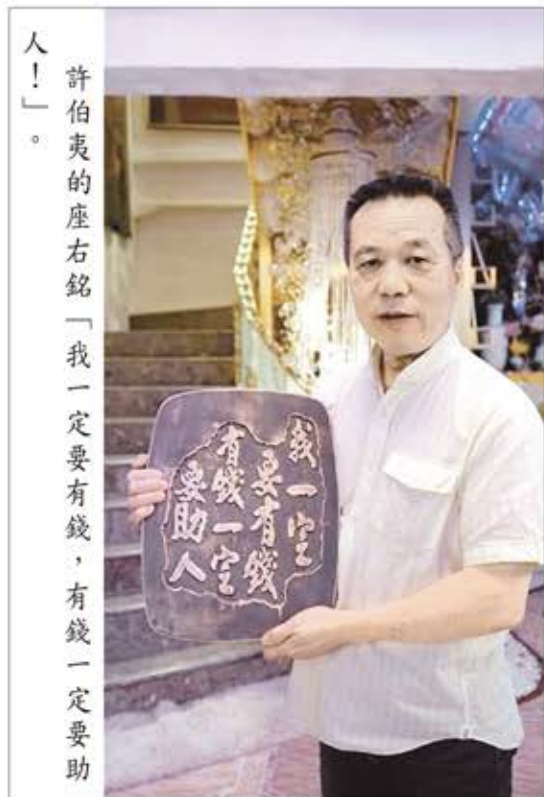 許伯夷的座右銘「我一定要有錢，有錢一定要助
人！」。
我一定
要有錢
有錢一定
要助人